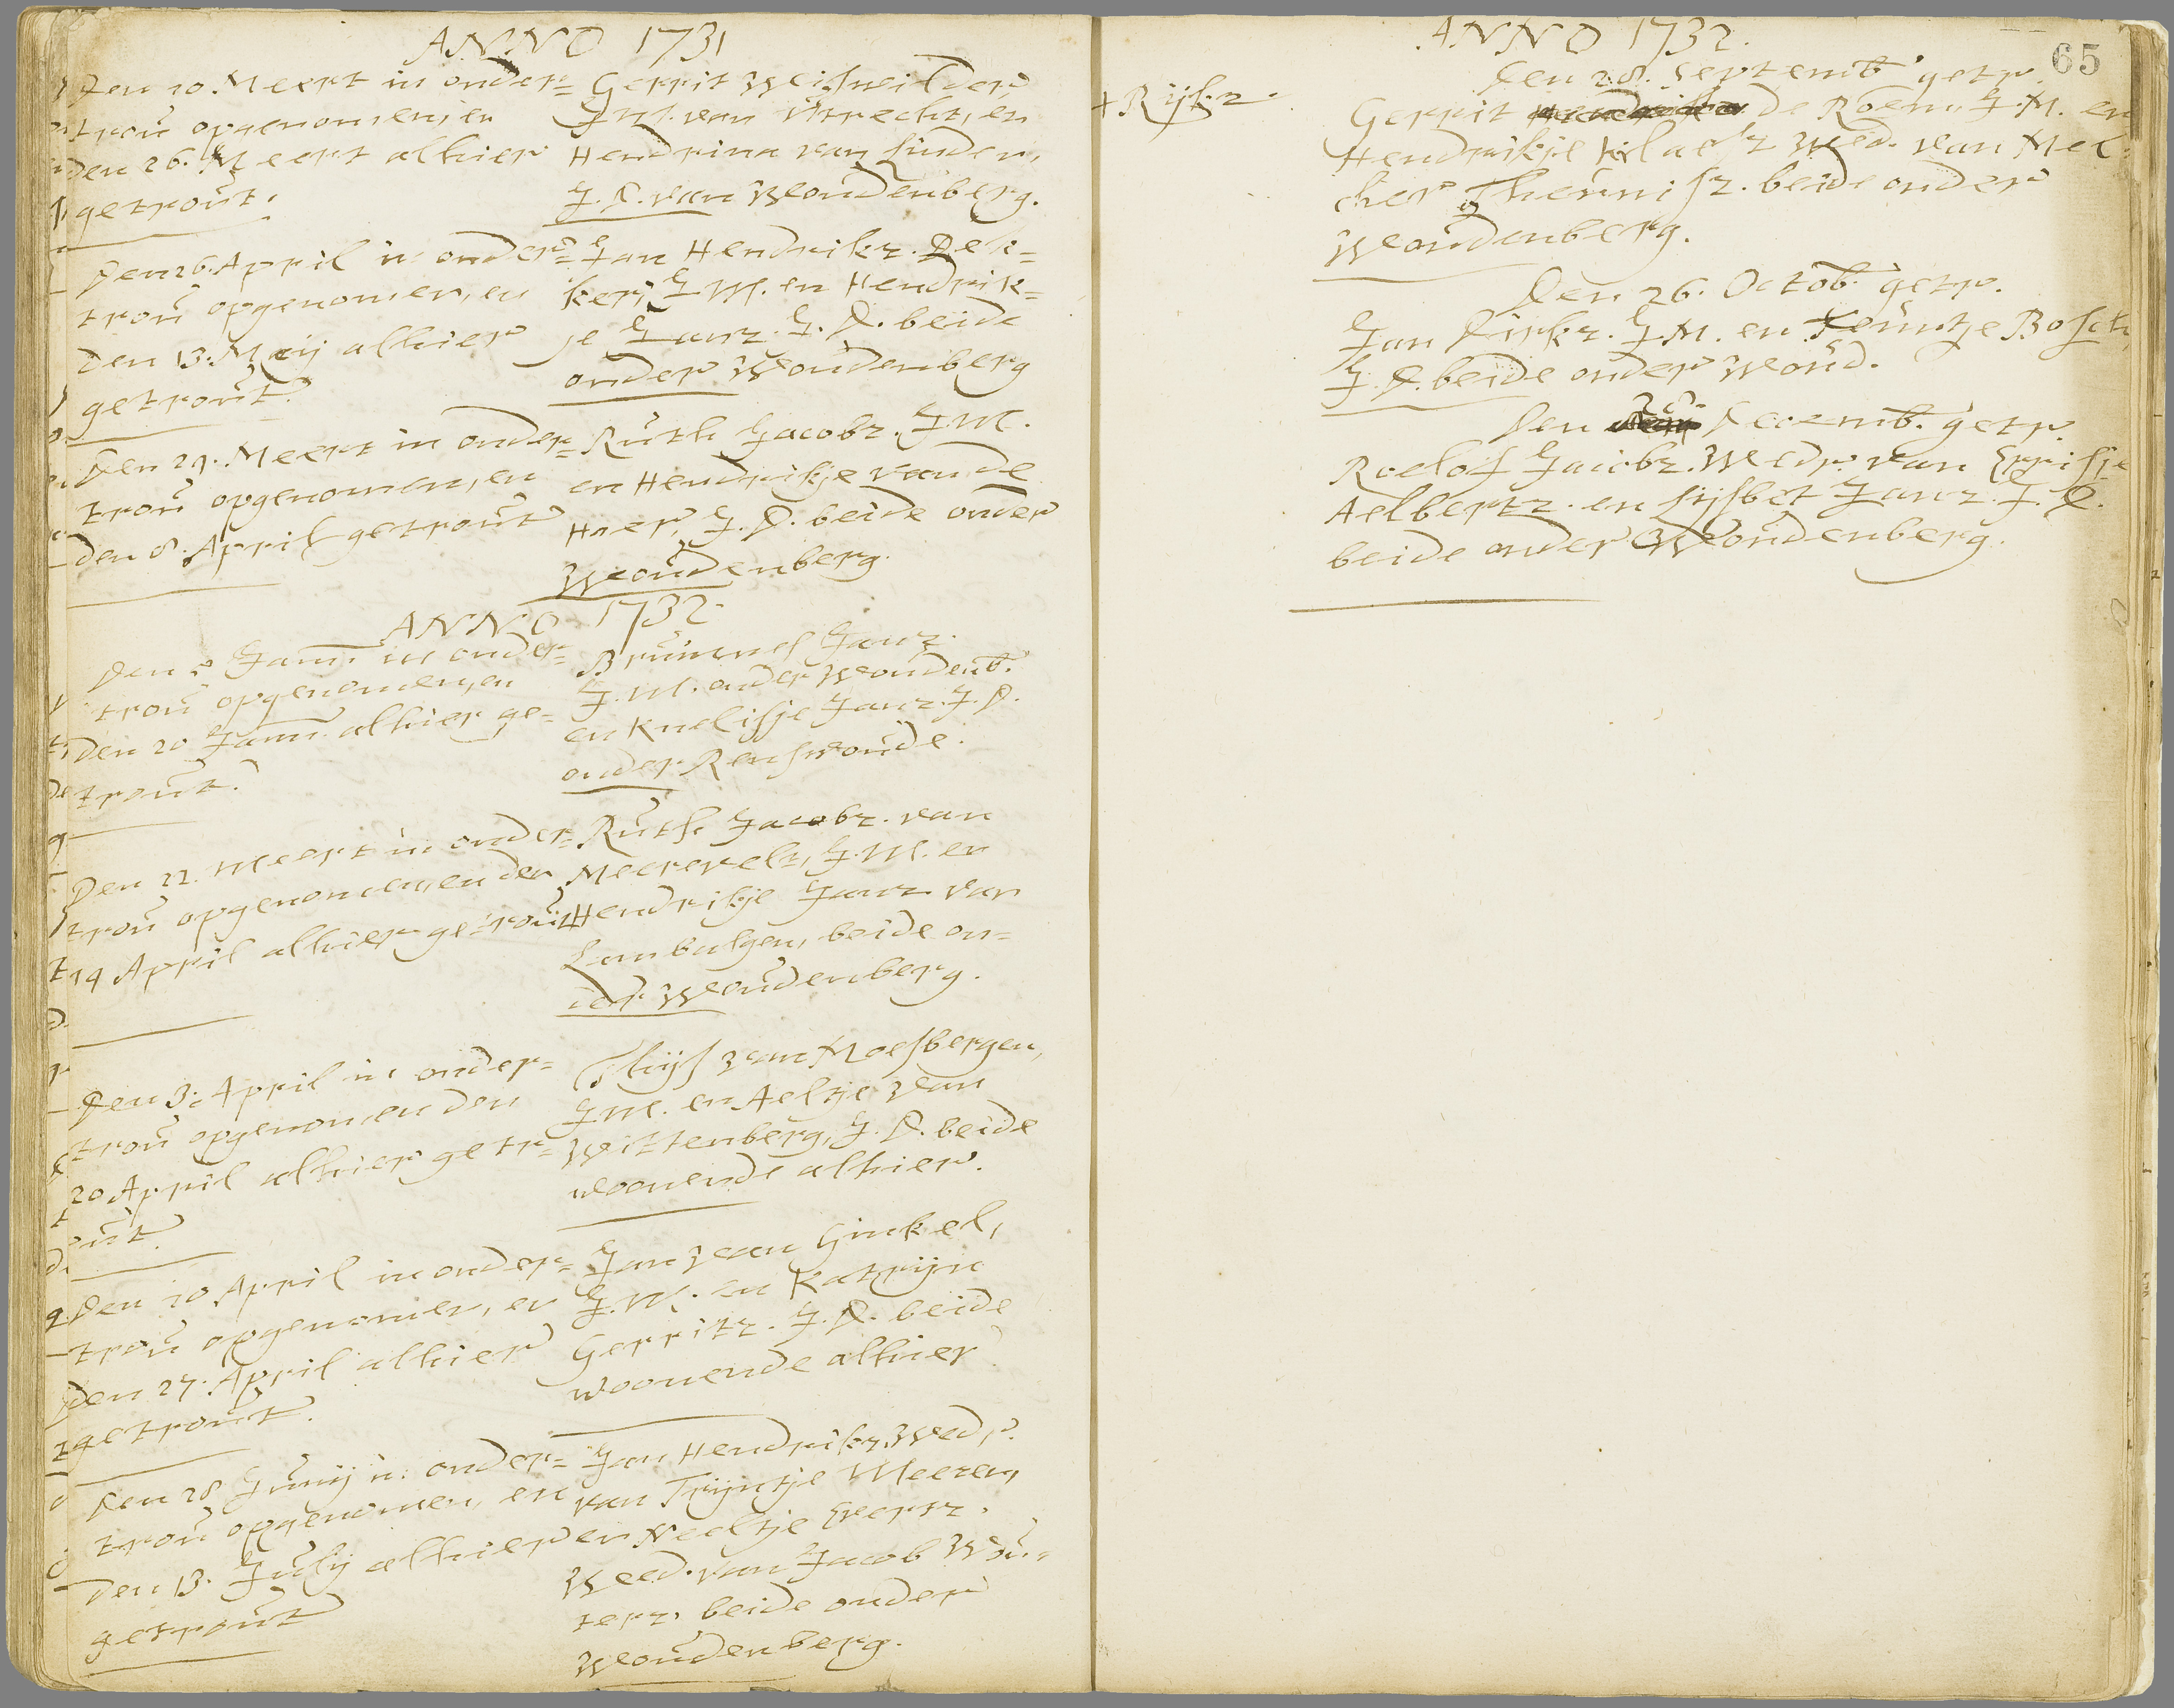 ANNO 1731
Den 10. Meert in onder=
trou opgenomen, en
den 26. Meert alhier
getrout.
Gerrit Weijweilder
J.M. van Utrecht, en
Hendrina van Linden,
J.D. van Woudenberg.
Den 26. April in onder=
trou opgenomen, en
den 13. Meij alhier
getrout.
Jan Hendrikz. Dek=
ker, J.M. en Hendrik=
je Janz. J.D. beide
onder Woudenberg
Den 29. Meert in onder=
trou opgenomen, en
den 8. April getrout
Ruth Jacobz. J.M.
en Hendrikje van de
Haer, J.D. beide onder
Woudenberg.
ANNO 1732.
Den Janu. in onder=
trou opgenomen, en
den 20 Janu. alhier ge=
trout.
Brunnes Janz.
J.M. onder Woudenb.
en Knelisje Janz. J.D.
onder Renswoude.
Den 22. Meert in onder=
trou opgenomen, en den
14 April alhier getrout
Ruth Jacobz. van
Meerevelt, J.M. en
Hendrikje Janz van
Lambalgen, beide on=
der Woudenberg.
Den 3. April in onder=
trou opgenomen den
20 April alhier getr=
out.
Thijs van Moesbergen,
J.M. en Aeltje van
Wittenberg, J.D. beide
woonende alhier.
Den 10 April in onder=
trou opgenomen, en
den 27. April alhier
getrout.
Jan van Ginkel,
J.M. en Katrijn
Gerritz. J.D. beide
woonende alhier
Den 28 Junij in onder=
trou opgenomen, en
den 13. Julij alhier
getrout
Jan Hendrikz. Wedr.
van Trijntje Meezen,
en Neeltje Evertz.
Weed. van Jacob Wou=
terz. beide onder
Woudenberg.
65
ANNO 1732.
+ Rijkz.
Den 28. Septemb. getr.
Gerrit de Roem, J.M. en
Hendrikje Klaesz Wed. van Mel=
cher Theunisz. beide onder
Woudenberg.
Den 26. Octob. getr.
Jan Dirkz. J.M. en Teuntje Bosch,
J.D. beide onder Woud.
Den 28. Decemb. getr.
Roelof Jacobz. Wedr. van Errisje
Aelbertz. en Lijsbet Janz. J.D.
beide onder Woudenberg.